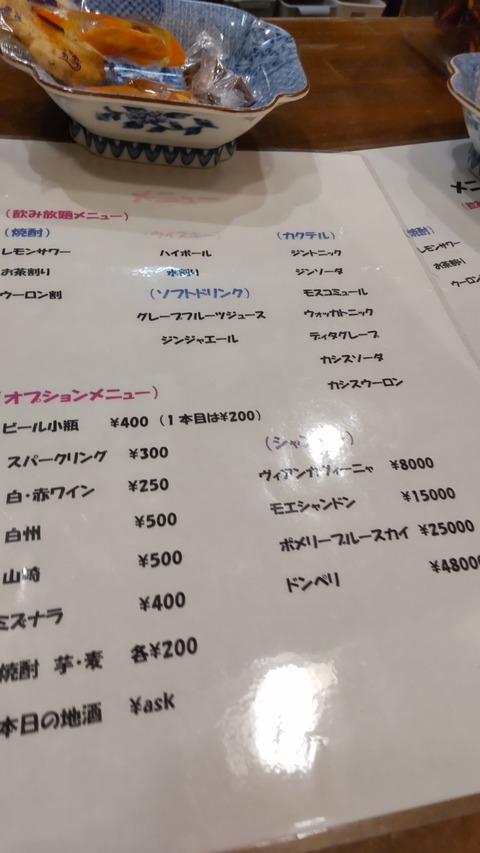 メニュー
(飲み放題メニュー)
(焼酎)
レモンサワー
お茶割り
ウーロン割
(ウイスキー)
ハイボール
水割り
(ソフトドリンク)
グレープフルーツジュース
ジンジャエール
(カクテル)
ジントニック
ジンソーダ
モスコミュール
ウォッカトニック
ディタグレープ
カシスソーダ
カシスウーロン
(オプションメニュー)
ビール小瓶 ¥400 (1本目は¥200)
スパークリング ¥300
白・赤ワイン ¥250
白州 ¥500
山崎 ¥500
ミズナラ ¥400
焼酎 芋・麦 各¥200
本日の地酒 ¥ask
ヴィアンカヴィーニャ ¥8000
モエシャンドン ¥15000
ポメリーブルースカイ ¥25000
ドンペリ ¥48000
(焼酎)
レモンサワー
お茶割り